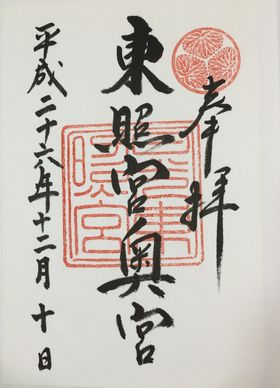 奉拝
東照宮奥宮
平成二十六年十二月十日